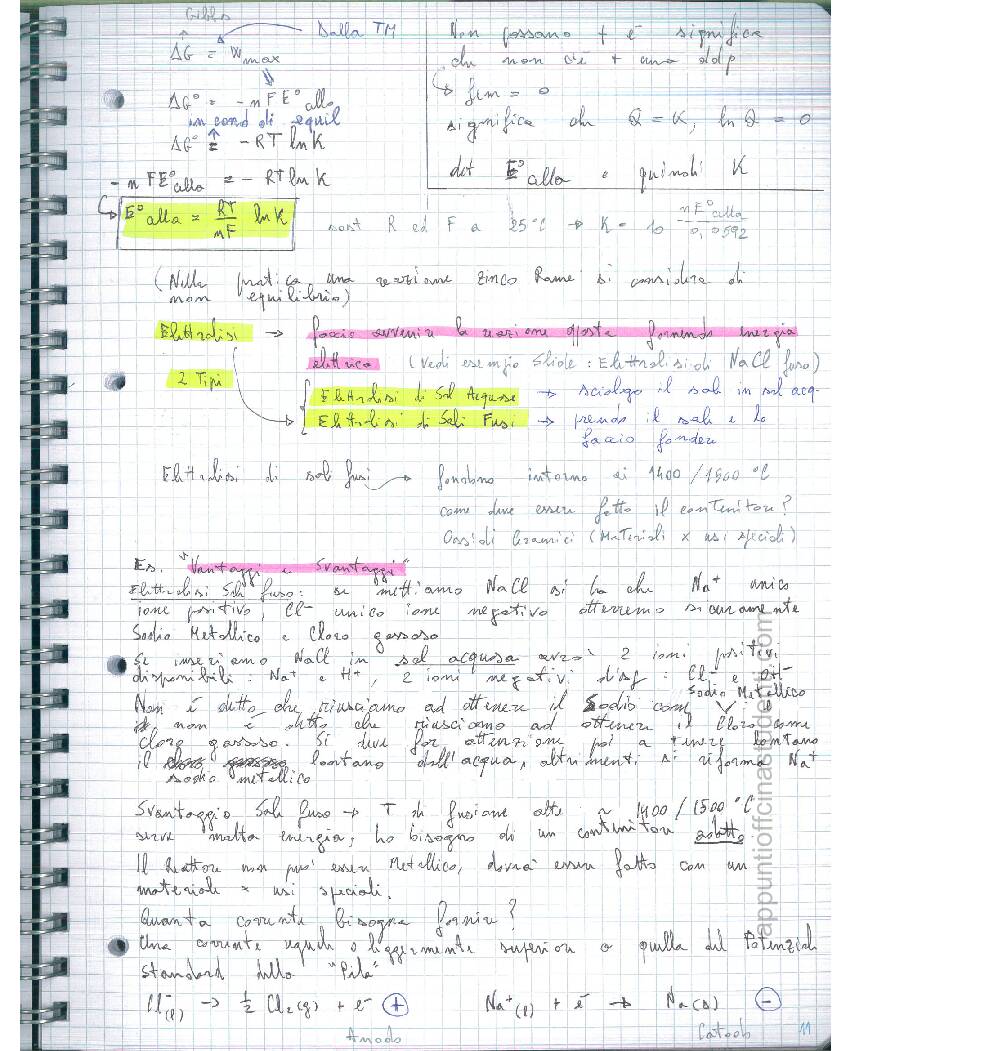 Gibbs
ΔG = Wmax
Dalla TM
ΔG° = - n F E° cella
in cond di equil
ΔG° = - RT ln K
- n FE° cella = - RT ln K
E° cella = RT/nF ln K
Non possono + e⁻ significa
che non c'è + una ddp
↳ fem = 0
significa che Q = K, ln Q = 0
det E° cella e quindi K
sost R ed F a 25°C → K = 10 nE° cella/0,0592
(Nella pratica una reazione Zinco Rame si considera di
non equilibrio)
Elettrolisi → faccio avvenire la reazione opposta fornendo energia
elettrica (Vedi esempio Slide : Elettrolisi di NaCl fuso)
2 Tipi
Elettrolisi di Sol Acquose → sciolgo il sale in sol acq.
Elettrolisi di Sali Fusi → prendo il sale e lo
faccio fondere
Elettrolisi di sali fusi → fondono intorno ai 1400/1500 °C
come deve essere fatto il contenitore?
Ossidi Ceramici (Materiali x usi speciali)
Es. "Vantaggi e Svantaggi"
Elettrolisi Sale fuso: se mettiamo NaCl si ha che Na⁺ unico
ione positivo, Cl⁻ unico ione negativo otterremo sicuramente
Sodio Metallico e Cloro gassoso
Se inseriamo NaCl in sol acquosa avrò 2 ioni positivi
disponibili : Na⁺ e H⁺, 2 ioni negativi disp : Cl⁻ e OH⁻
Sodio Metallico
Non è detto che riusciamo ad ottenere il Sodio come
non è detto che riusciamo ad ottenere il Cloro come
cloro gassoso. Si deve far attenzione poi a tenere lontano
il cloro gassoso lontano dall'acqua, altrimenti si riforma Na⁺
sodio metallico
Svantaggio Sale fuso → T di fusione alte ~ 1400/1500 °C
serve molta energia, ho bisogno di un contenitore adatto.
Il Reattore non può essere Metallico, dovrà essere fatto con un
materiale x usi speciali.
Quanta corrente bisogna fornire?
Una corrente uguale o leggermente superiore a quella del Potenziale
Standard della "Pila"
Cl⁻(l) → 1/2 Cl₂(g) + e⁻ (+) Na⁺(l) + e⁻ → Na(s) (-)
Anodo Catodo
11
appuntiofficinastudenti.com